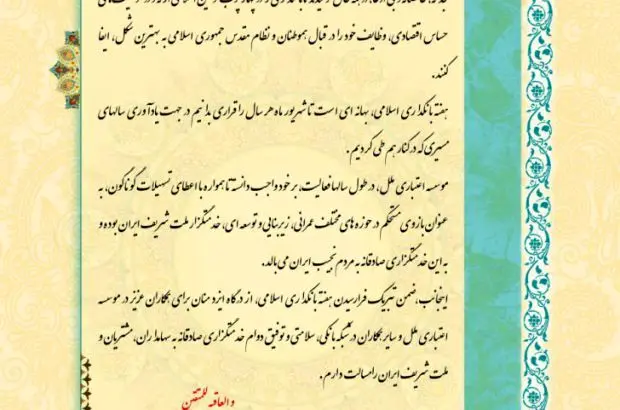 حساس اقتصادی، وظایف خود را در قبال هموطنان و نظام مقدس جمهوری اسلامی به بهترین شکل، ایفا
کنند.
هفته بانکداری اسلامی، بهانه ای است تا شهریور ماه هر سال را قراری بدانیم در جهت یادآوری سالهای
مسیری که در کنار هم طی کردیم.
موسسه اعتباری ملل، در طول سالها فعالیت، بر خود واجب دانسته تا همواره با اعطای تسهیلات گوناگون، به
عنوان بازوی مستحکم در حوزه های مختلف عمرانی، زیربنایی و توسعه ای، خدمتگزار ملت شریف ایران بوده و
به این خدمتگزاری صادقانه به مردم نجیب ایران می بالد.
اینجانب، ضمن تبریک فرارسیدن هفته بانکداری اسلامی، از درگاه ایزد منان برای همکاران عزیز در موسسه
اعتباری ملل و سایر همکاران در شبکه بانکی، سلامتی و توفیق دوام خدمتگزاری صادقانه به سهامداران، مشتریان و
ملت شریف ایران را مسالت دارم.
و العاقبه للمتقین